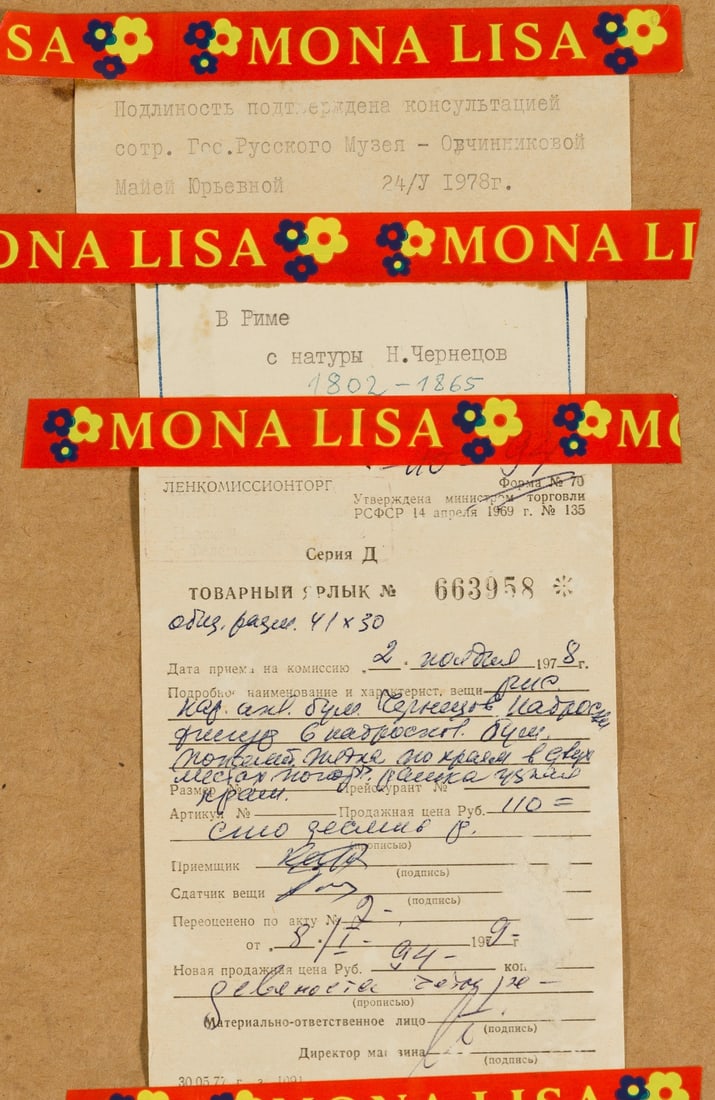 SA MONA LISA
Подлиность подтверждена консультацией
сотр. Гос.Русского Музея – Овчинниковой
Майей Юрьевной 24/У 1978г.
ONA LISA MONA LI
В Риме
с натуры Н.Чернецов
1802 – 1865
MONA LISA MO
ЛЕНКОМИССИОНТОРГ
Форма № 70
Утверждена министром торговли
РСФСР 14 апреля 1969 г. № 135
Серия Д
ТОВАРНЫЙ ЯРЛЫК № 663958
общ. разм. 41 х 30
Дата приема на комиссию 2 ноября 1978г.
Подробное наименование и характерист. вещи рис
кар. акв. бум. Чернецов Наброски
фигур 6 набросков. Бум.
пожелт. по краям в двух
местах рамка узкая
Размер № Прейскурант №
краш.
Артикул № Продажная цена Руб. 110 =
сто десять р.
(прописью)
Приемщик
(подпись)
Сдатчик вещи
(подпись)
Переоценено по акту № 2-
от 8/I- 1979 г
Новая продажная цена Руб. 94- коп
девяносто четыре –
(прописью)
Материально-ответственное лицо
(подпись)
Директор магазина
(подпись)
MONA LISA